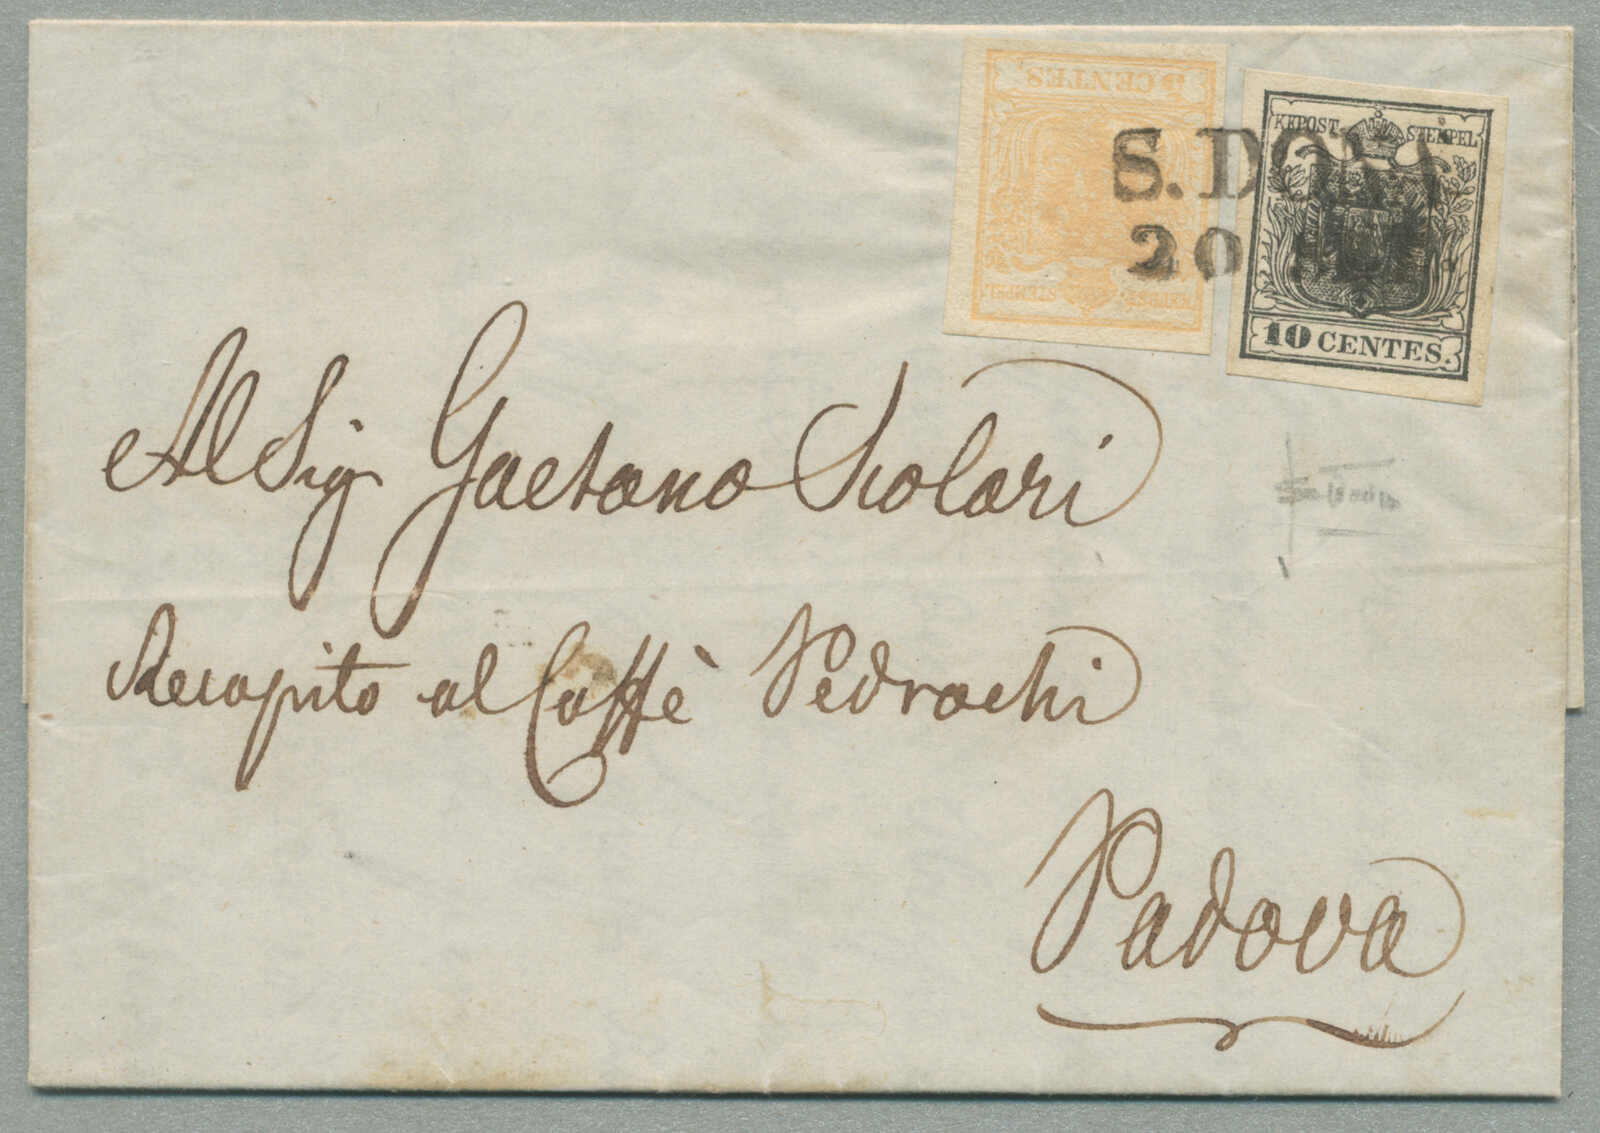 5 CENTES.
KKPOST-STEMPEL
S. DONA
20
KKPOST STEMPEL
10 CENTES.
Al Sigr Gaetano Scolari
Recapito al Caffè Pedrochi
Padova